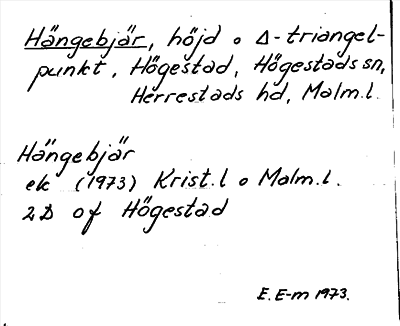 Hängebjär, höjd o Δ-triangel-
punkt, Högestad, Högestads sn,
Herrestads hd, Malm.l.
Hängebjär
ek (1973) Krist.l o Malm.l.
2D of Högestad
E. E-m 1973.